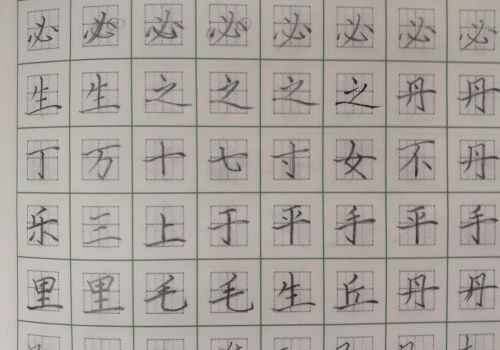 必必必必必必必必
生生之之之之丹丹
丁万十七寸女不丹
乐三上于平手平手
里里毛毛生丘丹丹